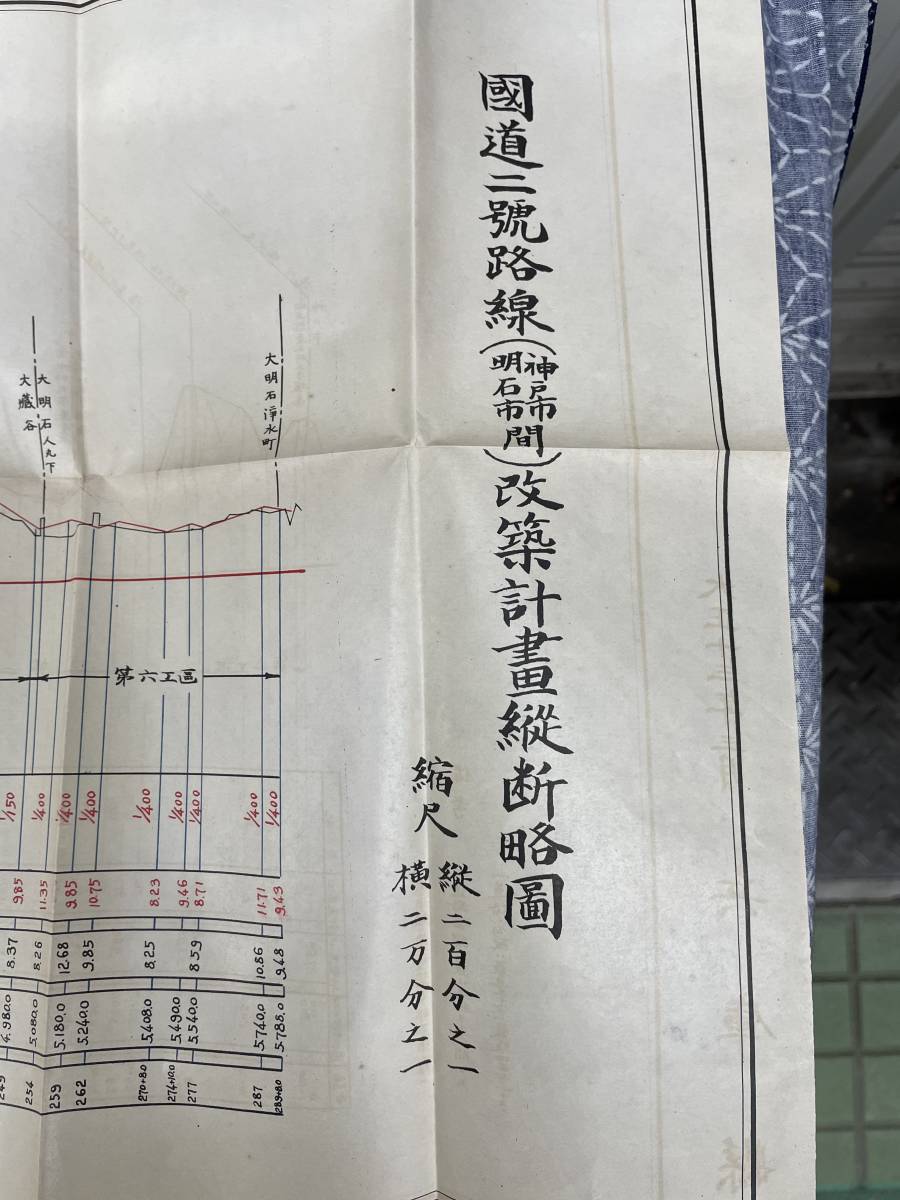 國道二號路線(神戸市明石市間)改築計畫縱断略圖
縮尺
縱二百分之一
橫二万分之一
大明石淨水町
大明石人丸下
大藏谷
第六工區
1/50 1/400 1/400 1/400 1/400 1/400 1/400 1/400 1/400
9.85 11.35 9.85 10.75 8.23 9.46 8.71 11.71 9.43
8.37 8.26 12.68 9.85 8.25 8.59 10.86 9.48
4.980.0 5.080.0 5.180.0 5.240.0 5.408.0 5.490.0 5.540.0 5.740.0 5.788.0
249 254 259 262 270+8.0 274+10.0 277 287 289+8.0